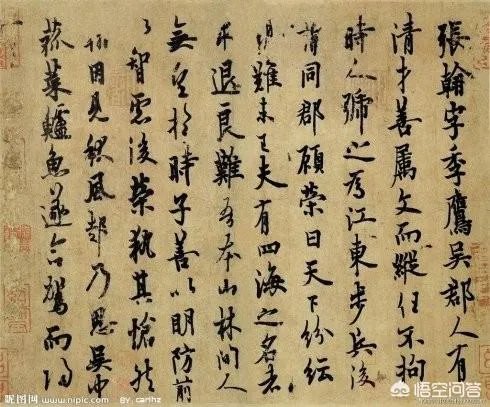 張翰字季鷹吳郡人有
清才善屬文而縱任不拘
時人號之為江東步兵後
謂同郡顧榮曰天下紛紜
難未已夫有四海之名者
求退良難吾本山林間人
無望於時子善以明防前
以智慮後榮執其愴然
翰因見秋風起乃思吳中
菰菜鱸魚遂命駕而歸
昵图网 www.nipic.com BY: carlhz
悟空问答